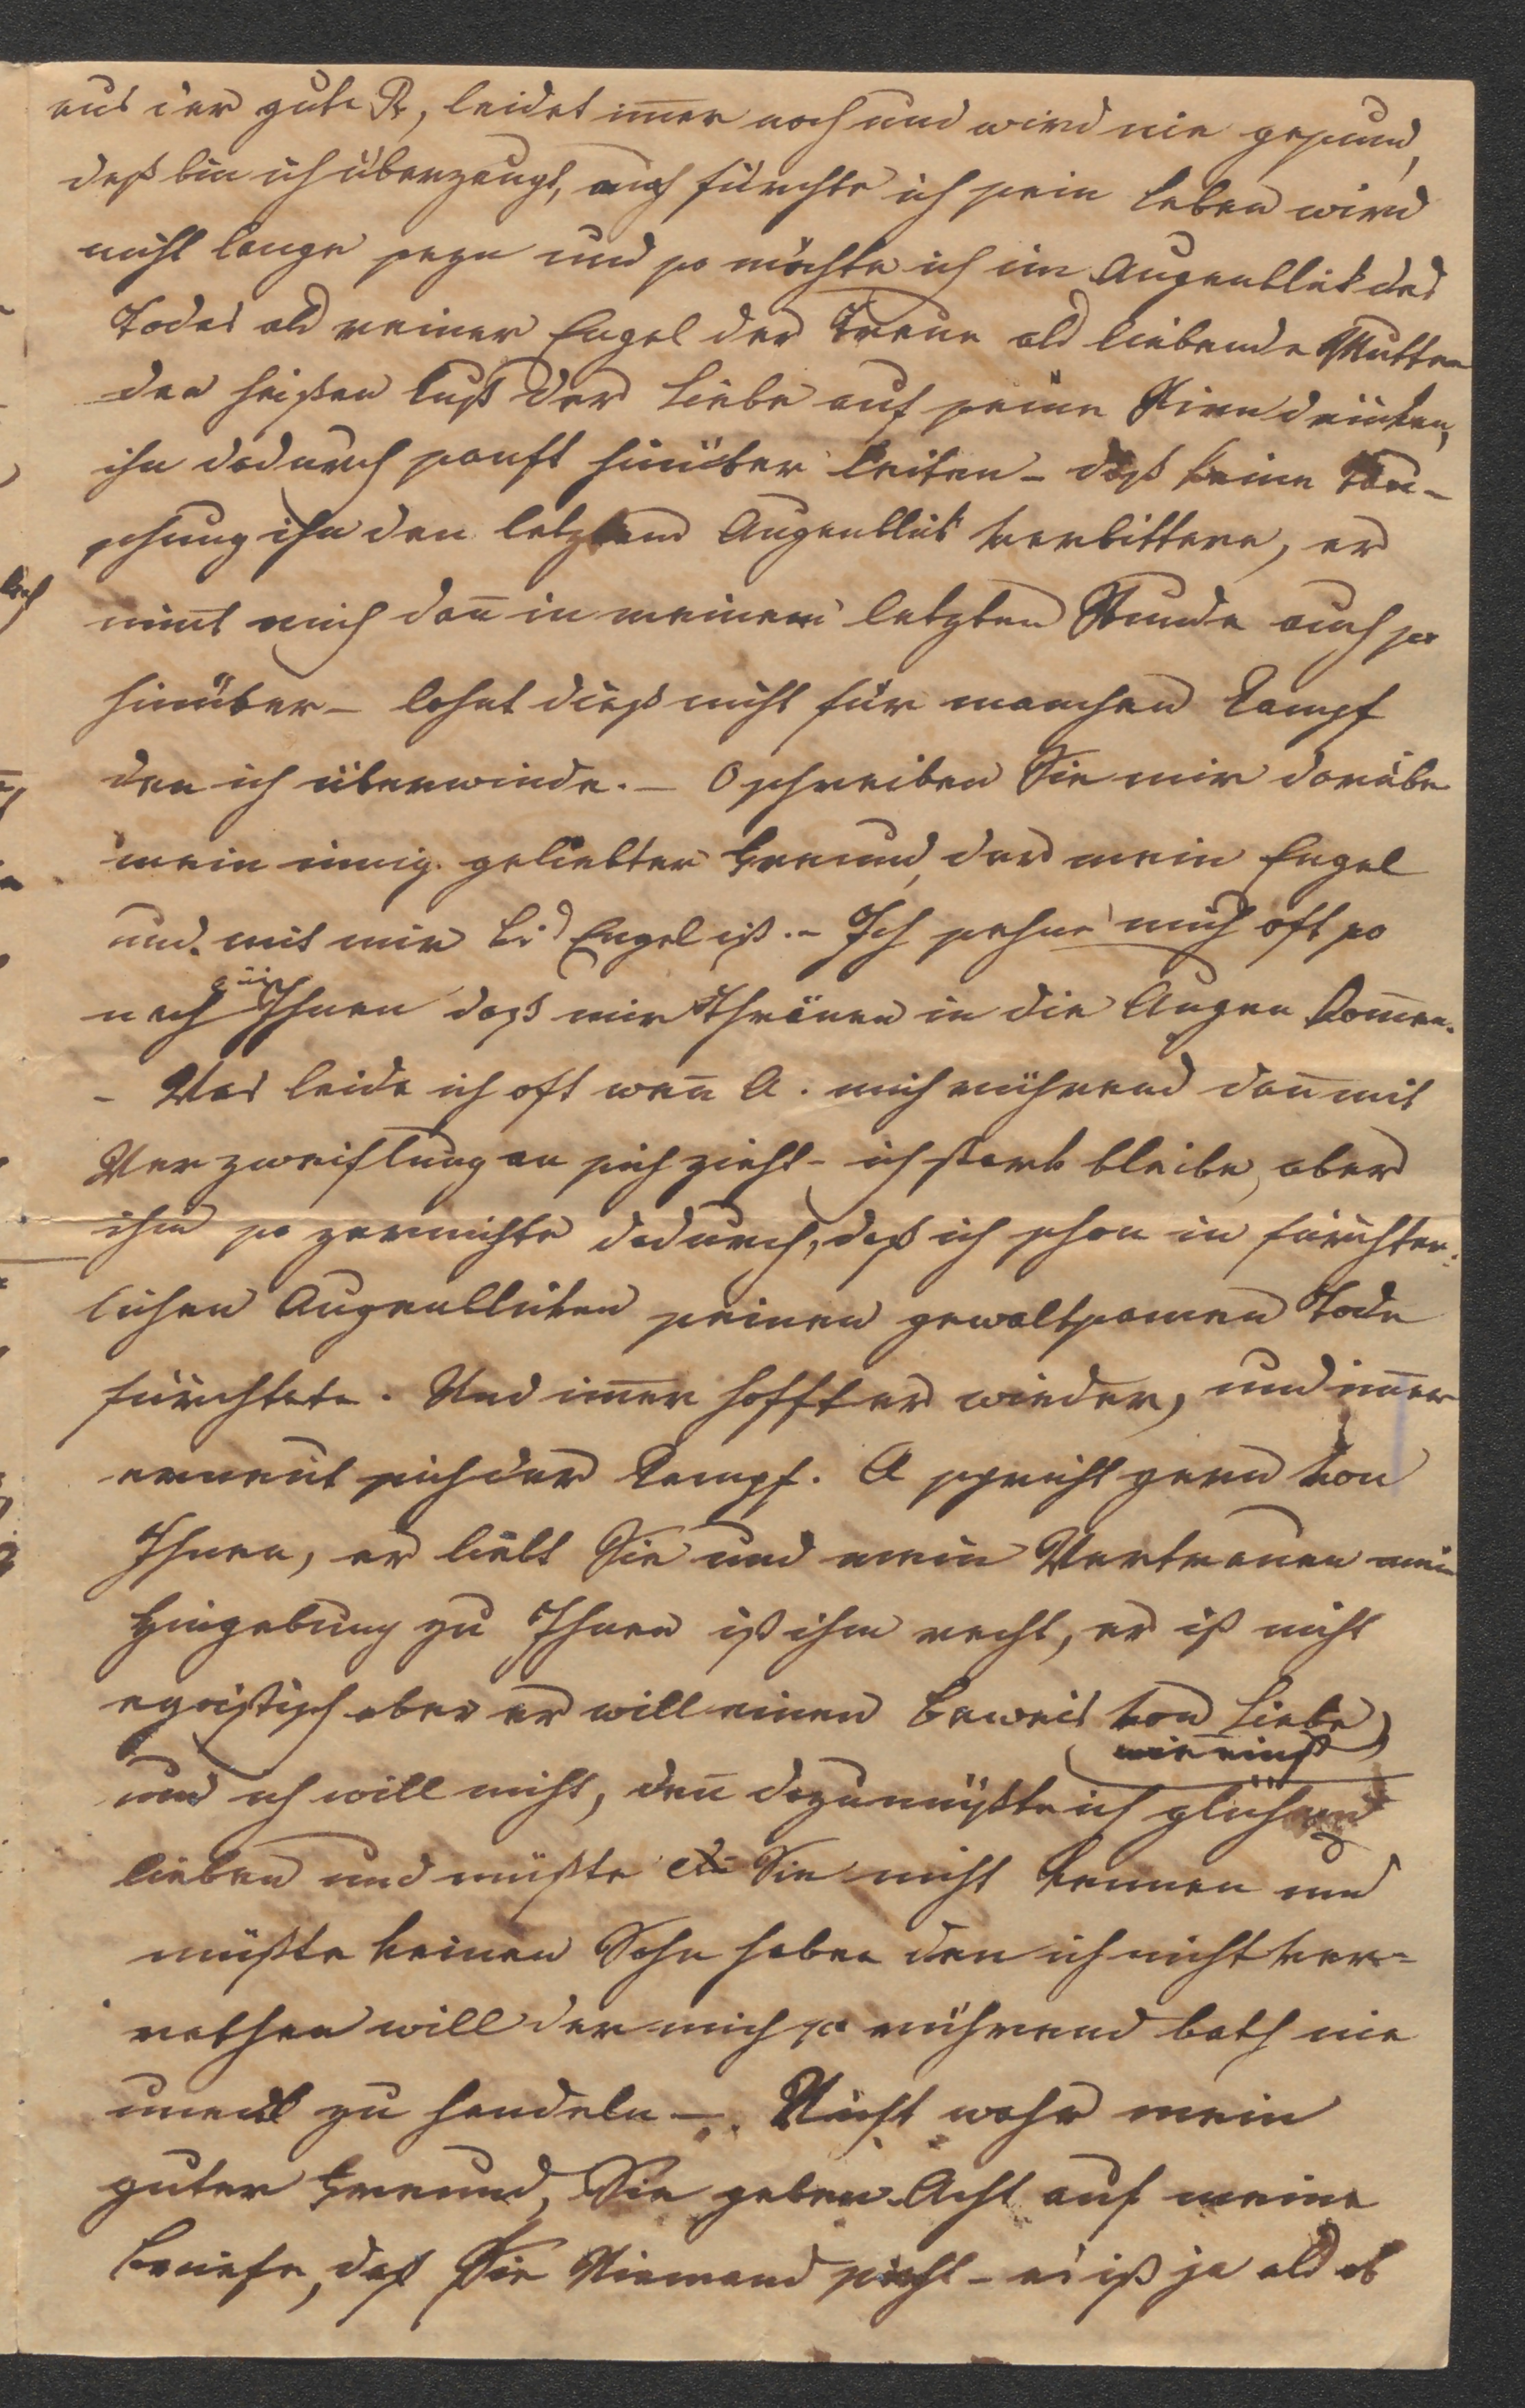 aus der gute R, leidet im̄er noch und wird nie gesund,
deß bin ich überzeugt, auch fürchte ich sein Leben wird
nicht lange seyn und so möchte ich im Augenblick des
Todes als reiner Engel der Treue als liebende Mutter
den heißen Kuß der Liebe auf seine Stirn drücken,
ihn dadurch sanft hinüber leiten - daß keine Täu-
schung ihn den letzten Augenblick verbittere, er
nim̄t mich dan̄ in meiner letzten Stunde auch so
hinüber - lohnt dieß nicht für manchen Kampf
den ich überwinde. - O schreiben Sie mir darüber
mein innig. geliebter Freund, der mein Engel
und mit mir Engel ist. - Ich sehne mich oft so
nach Ihnen daß mir Thränen in die Augen kom̄en.
- Was leide ich oft wen̄ A. mich rührend dan̄ mit
Verzweiflung an sich zieht - ich stark bleibe, aber
ihn so zernichte dadurch, daß ich schon in fürchter-
lichen Augenblicken seinen gewaltsamen Tode
fürchtete. Und im̄er hofft er wieder, und im̄er
erneut sich der Kampf. A spricht gern von
Ihnen, er liebt Sie und mein Vertrauen mein
Hingebung zu Ihnen ist ihm recht, er ist nicht
egoistisch aber er will einen Beweis von Liebe,
wie einst
und ich will nicht, den̄ dazu müßte ich glühend
lieben und müßte Sie nicht kennen und
müßte keinen Sohn haben den ich nicht ver-
rathen will der mich so rührend bath nie
unedel zu handeln -. Nicht wahr mein
guter Freund, Sie geben Acht auf meine
Briefe, daß Sie Niemand sieht - es ist ja als ob